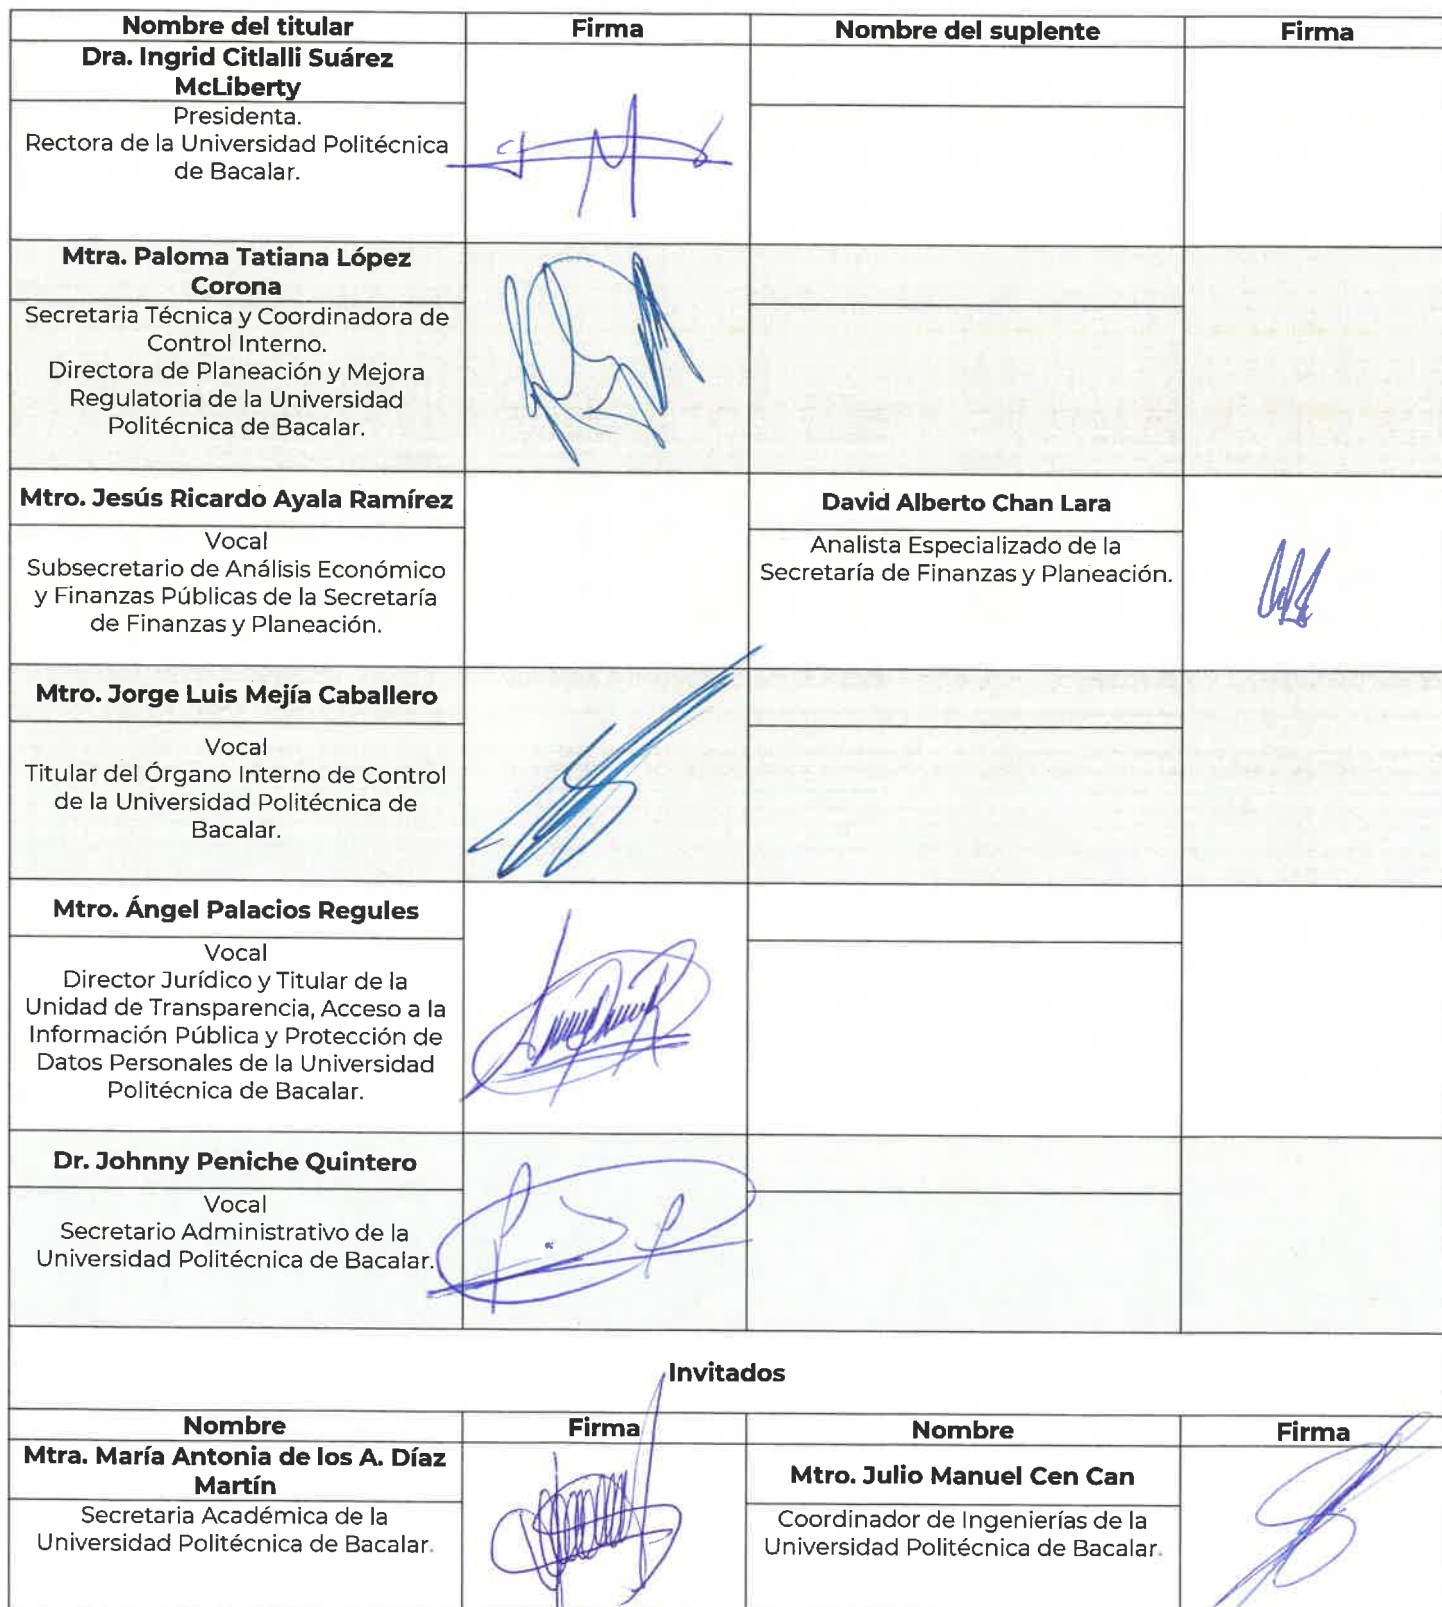 Nombre del titular Firma Nombre del suplente Firma
Dra. Ingrid Citlalli Suárez
McLiberty
Presidenta.
Rectora de la Universidad Politécnica
de Bacalar.
Mtra. Paloma Tatiana López
Corona
Secretaria Técnica y Coordinadora de
Control Interno.
Directora de Planeación y Mejora
Regulatoria de la Universidad
Politécnica de Bacalar.
Mtro. Jesús Ricardo Ayala Ramírez
Vocal
Subsecretario de Análisis Económico
y Finanzas Públicas de la Secretaría
de Finanzas y Planeación.
David Alberto Chan Lara
Analista Especializado de la
Secretaría de Finanzas y Planeación.
Mtro. Jorge Luis Mejía Caballero
Vocal
Titular del Órgano Interno de Control
de la Universidad Politécnica de
Bacalar.
Mtro. Ángel Palacios Regules
Vocal
Director Jurídico y Titular de la
Unidad de Transparencia, Acceso a la
Información Pública y Protección de
Datos Personales de la Universidad
Politécnica de Bacalar.
Dr. Johnny Peniche Quintero
Vocal
Secretario Administrativo de la
Universidad Politécnica de Bacalar.
Invitados
Nombre Firma Nombre Firma
Mtra. María Antonia de los A. Díaz
Martín
Secretaria Académica de la
Universidad Politécnica de Bacalar.
Mtro. Julio Manuel Cen Can
Coordinador de Ingenierías de la
Universidad Politécnica de Bacalar.